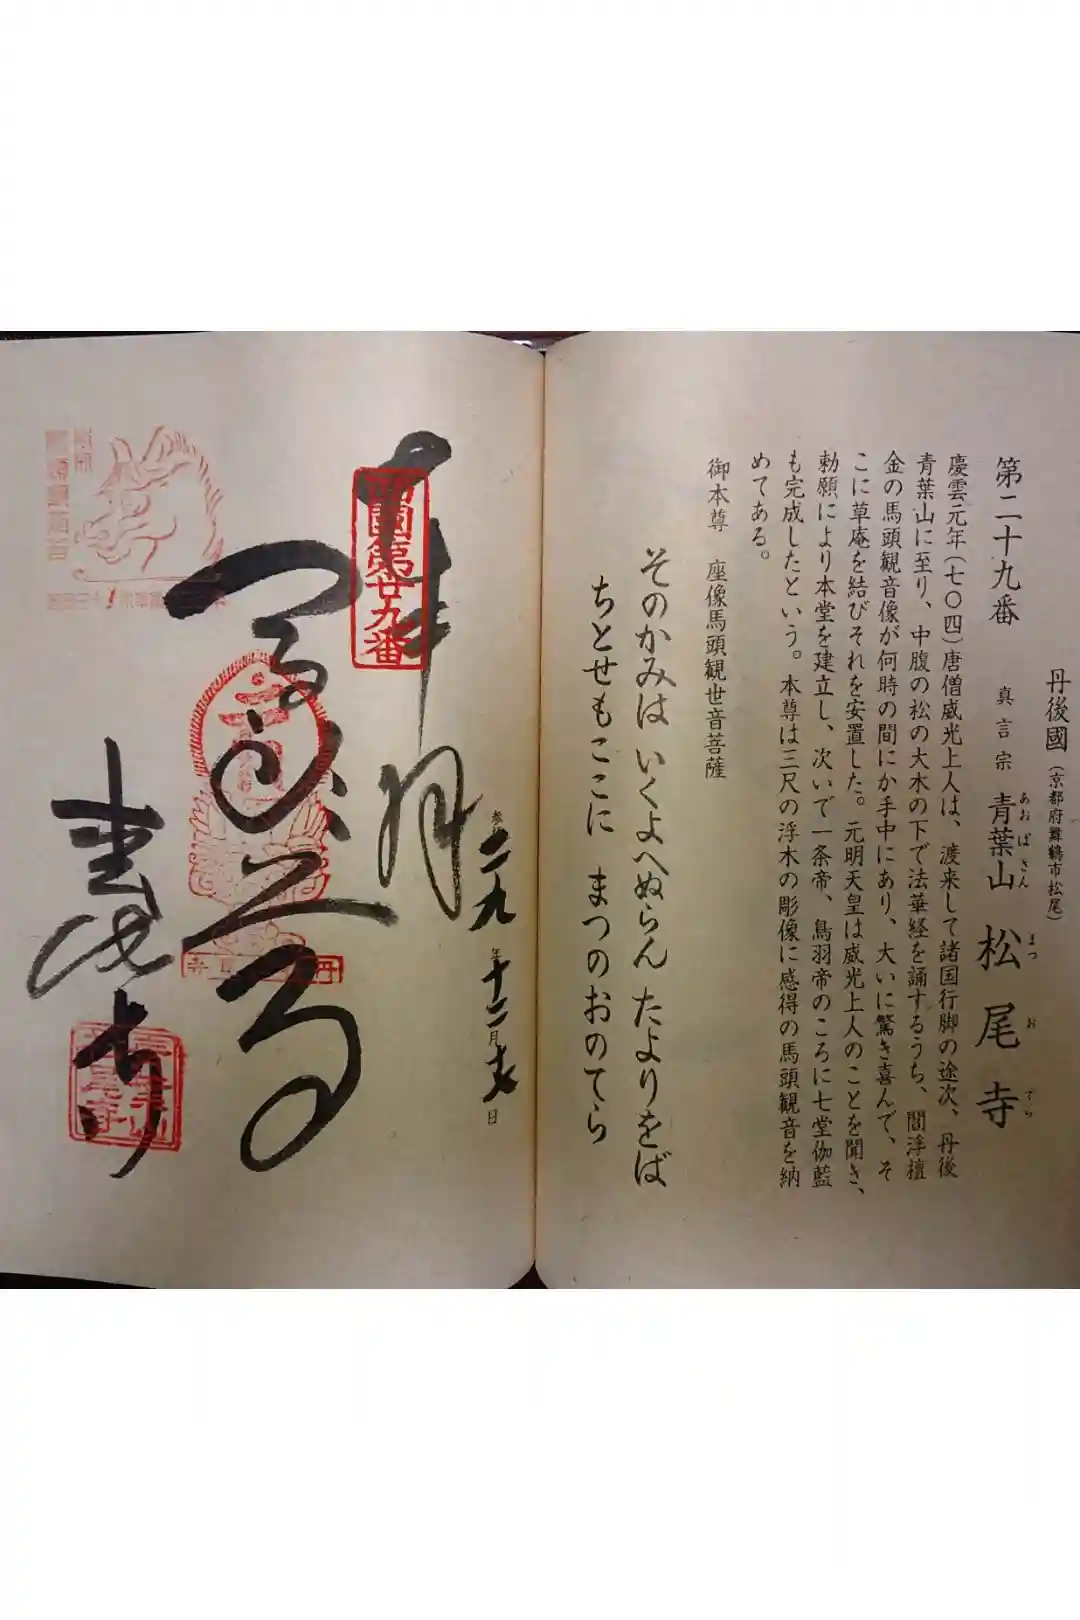 丹後國(京都府舞鶴市松尾)
第二十九番 真言宗 青葉山 松尾寺
あおばさん まつおでら
慶雲元年(七〇四)唐僧威光上人は、渡来して諸国行脚の途次、丹後
青葉山に至り、中腹の松の大木の下で法華経を誦するうち、閻浮檀
金の馬頭観音像が何時の間にか手中にあり、大いに驚き喜んで、そ
こに草庵を結びそれを安置した。元明天皇は威光上人のことを聞き、
勅願により本堂を建立し、次いで一条帝、鳥羽帝のころに七堂伽藍
も完成したという。本尊は三尺の浮木の彫像に感得の馬頭観音を納
めてある。
御本尊 座像馬頭観世音菩薩
そのかみは いくよへぬらん たよりをば
ちとせもここに まつのおのてら
二九年十二月 日
奉拝
西國第廿九番
松尾寺